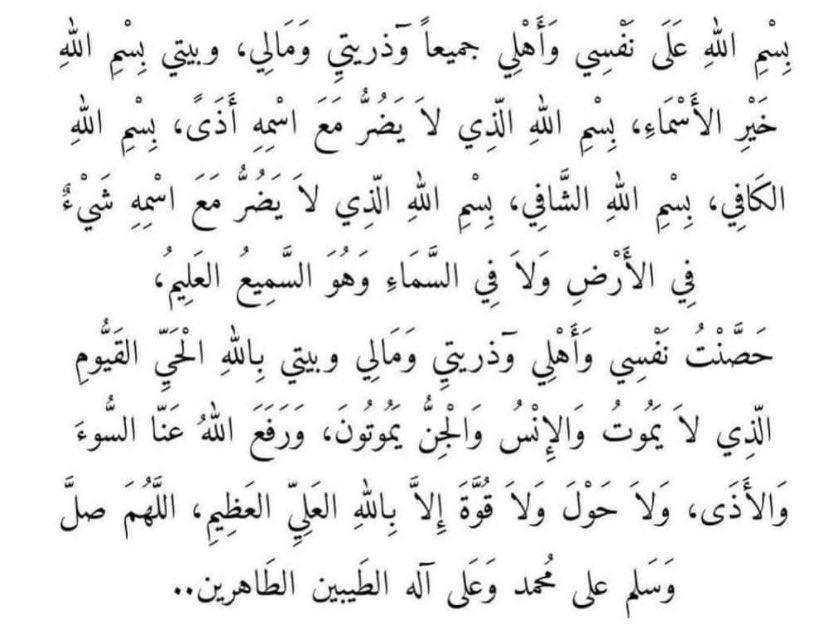 بِسْمِ اللهِ عَلَى نَفْسِي وَأَهْلِي جميعاً وَذريتيِ وَمَالِي، وبيتي بِسْمِ اللهِ
خَيْرِ الأَسْمَاءِ، بِسْمِ اللهِ الّذِي لاَ يَضُرُّ مَعَ اسْمِهِ أَذَىً، بِسْمِ اللهِ
الكَافِي، بِسْمِ اللهِ الشَّافِي، بِسْمِ اللهِ الّذِي لاَ يَضُرُّ مَعَ اسْمِهِ شَيْءٌ
فِي الأَرْضِ وَلاَ فِي السَّمَاءِ وَهُوَ السَّمِيعُ العَلِيمُ،
حَصَّنْتُ نَفْسِي وَأَهْلِي وَذريتيِ وَمَالِي وبيتي بِاللهِ الْحَيِّ القَيُّومِ
الّذِي لاَ يَمُوتُ وَالإِنْسُ وَالْجِنُّ يَمُوتُونَ، وَرَفَعَ اللهُ عَنّا السُّوءَ
وَالأَذَى، وَلاَ حَوْلَ وَلاَ قُوَّةَ إِلاَّ بِاللهِ العَلِيِّ العَظِيمِ، اللَّهُمَ صلَّ
وَسَلم على مُحمد وَعَلى آله الطَيبين الطَاهرين..